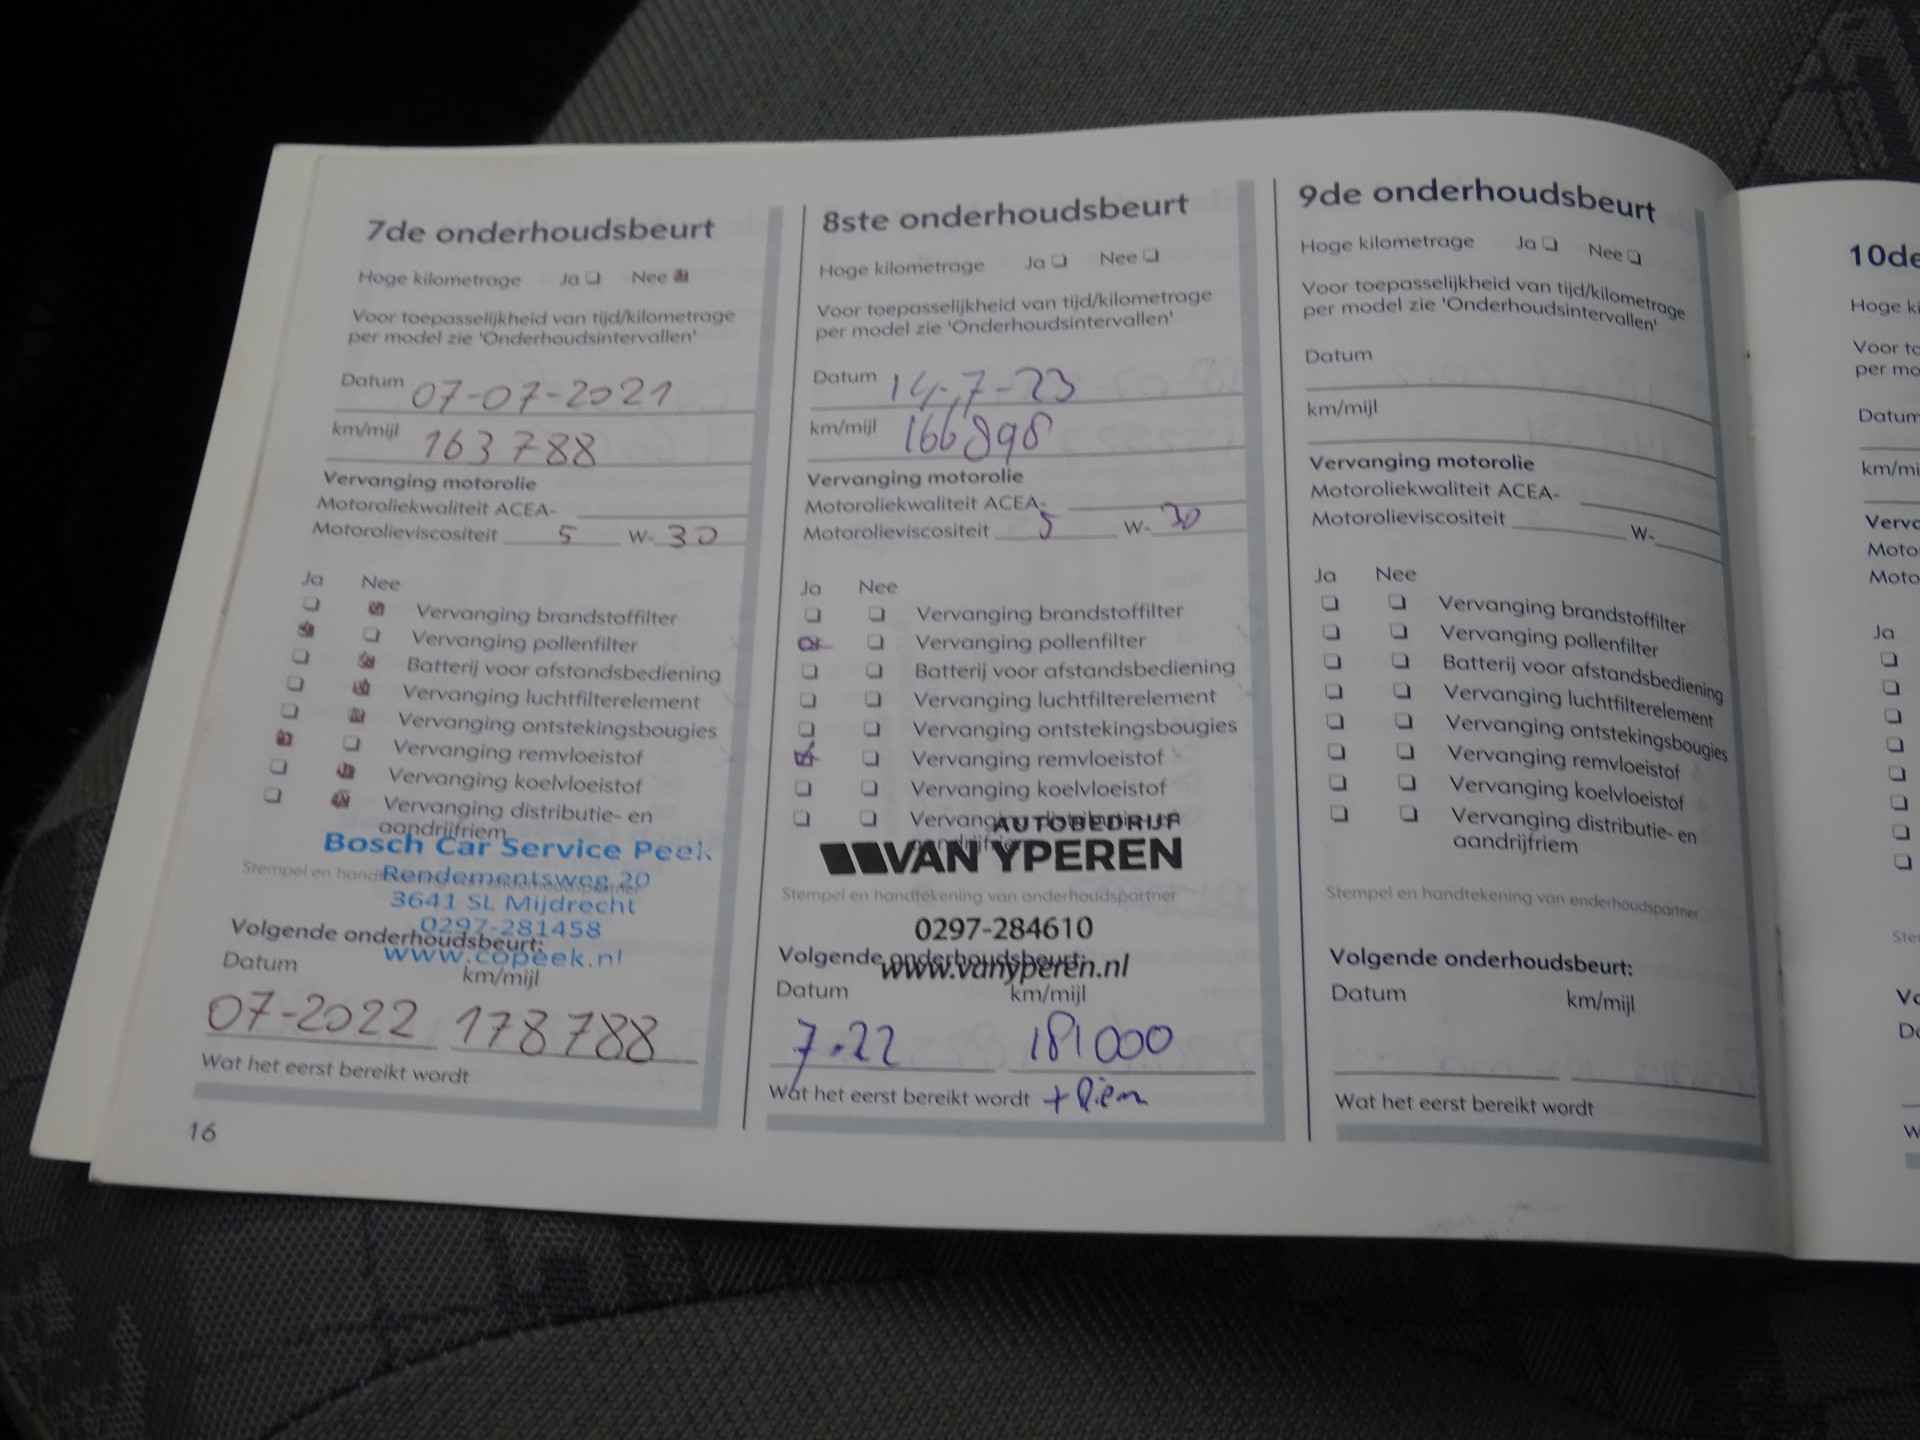 7de onderhoudsbeurt
Hoge kilometrage Ja Nee
Voor toepasselijkheid van tijd/kilometrage
per model zie 'Onderhoudsintervallen'
Datum 07-07-2021
km/mijl 163788
Vervanging motorolie
Motoroliekwaliteit ACEA-
Motorolieviscositeit 5 W-30
Ja Nee
Vervanging brandstoffilter
Vervanging pollenfilter
Batterij voor afstandsbediening
Vervanging luchtfilterelement
Vervanging ontstekingsbougies
Vervanging remvloeistof
Vervanging koelvloeistof
Vervanging distributie- en
aandrijfriem
Bosch Car Service Peek
Stempel en handtekening van onderhoudspartner
Rendementsweg 20
3641 SL Mijdrecht
0297-281458
Volgende onderhoudsbeurt:
www.copeek.nl
Datum km/mijl
07-2022 178788
Wat het eerst bereikt wordt
16
8ste onderhoudsbeurt
Hoge kilometrage Ja Nee
Voor toepasselijkheid van tijd/kilometrage
per model zie 'Onderhoudsintervallen'
Datum 14-7-23
km/mijl 166898
Vervanging motorolie
Motoroliekwaliteit ACEA-
Motorolieviscositeit 5 W-30
Ja Nee
Vervanging brandstoffilter
Vervanging pollenfilter
Batterij voor afstandsbediening
Vervanging luchtfilterelement
Vervanging ontstekingsbougies
Vervanging remvloeistof
Vervanging koelvloeistof
Vervanging distributie- en
aandrijfriem
AUTOBEDRIJF
VAN YPEREN
Stempel en handtekening van onderhoudspartner
0297-284610
Volgende onderhoudsbeurt:
www.vanyperen.nl
Datum km/mijl
7.22 181000
Wat het eerst bereikt wordt + Riem
9de onderhoudsbeurt
Hoge kilometrage Ja Nee
Voor toepasselijkheid van tijd/kilometrage
per model zie 'Onderhoudsintervallen'
Datum
km/mijl
Vervanging motorolie
Motoroliekwaliteit ACEA-
Motorolieviscositeit W-
Ja Nee
Vervanging brandstoffilter
Vervanging pollenfilter
Batterij voor afstandsbediening
Vervanging luchtfilterelement
Vervanging ontstekingsbougies
Vervanging remvloeistof
Vervanging koelvloeistof
Vervanging distributie- en
aandrijfriem
Stempel en handtekening van onderhoudspartner
Volgende onderhoudsbeurt:
Datum km/mijl
Wat het eerst bereikt wordt
10de
Hoge ki
Voor to
per mo
Datum
km/mi
Verva
Moto
Moto
Ja
Ste
Vo
Da
W